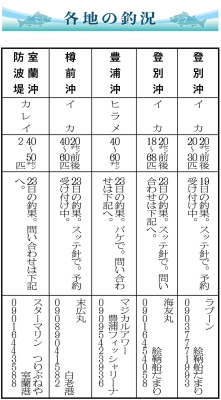 各地の釣況
登別沖
イカ
20㌢前後
20〜30匹
19日の釣果。スッテ針で。予約受け付け中。
ラブーン
絵鞆船だまり
登別沖
イカ
20㌢前後
18〜68匹
23日の釣果。スッテ針で。問い合わせは下記へ。
海友丸
絵鞆船だまり
09016454058
豊浦沖
ヒラメ
40〜60㌢
23日の釣果。バケで。問い合わせは下記へ。
マジカルアワー
豊浦フィッシャリーナ
09095423936
樽前沖
イカ
20㌢前後
40〜60匹
23日の釣果。スッテ針で。予約受け付け中。
末広丸
白老港
09089041582
室蘭沖
防波堤
カレイ
40〜50㌢
2匹
23日の釣果。問い合わせは下記へ。
スターマリン つりぶねや
室蘭港
09016443588